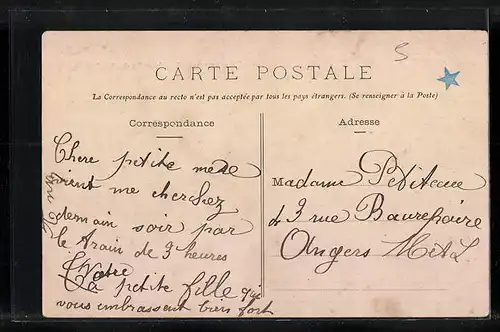 S
CARTE POSTALE
La Correspondance au recto n'est pas acceptée par tous les pays étrangers. (Se renseigner à la Poste)
Correspondance
Adresse
Chere petite mere
vient me cherchez
demain soir par
le train de 3 heures
Votre
ta petite fille qui
vous embrassent bien fort
Madame Petiteau
3 rue Baurepaire
Angers M et L